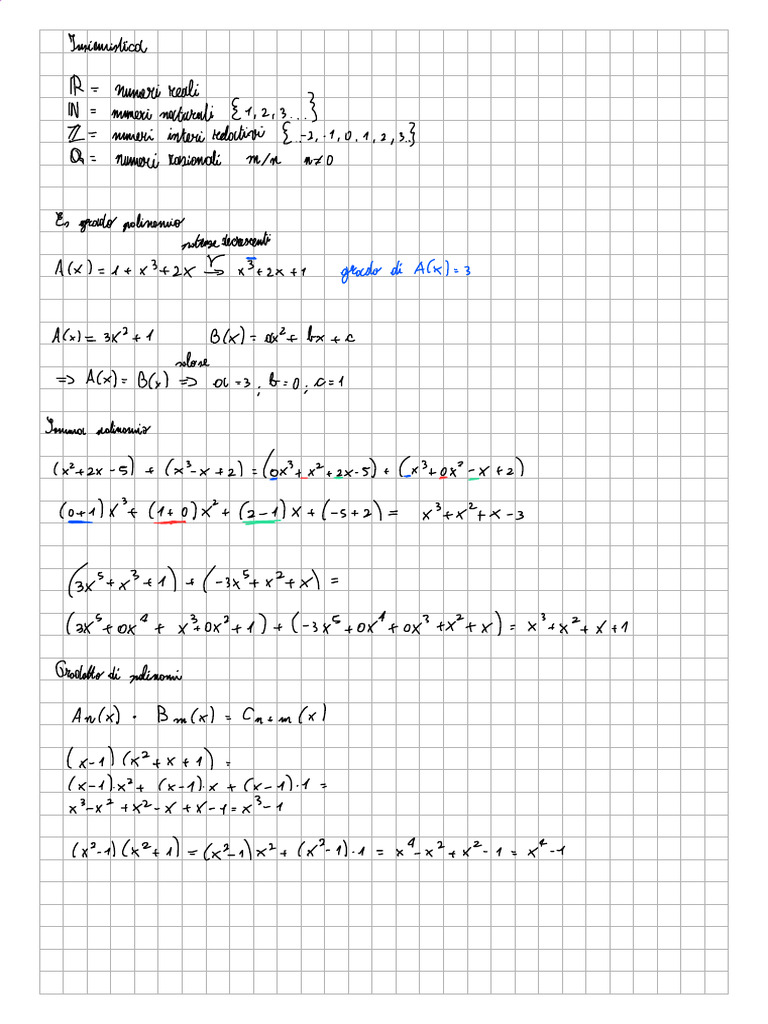 Insiemistica
ℝ = numeri reali
ℕ = numeri naturali {1, 2, 3...}
ℤ = numeri interi relativi {...-2, -1, 0, 1, 2, 3..}
ℚ = numeri razionali m/n n≠0
Es grado polinomio
potenze decrescenti
A(x) = 1 + x³ + 2x → x³ + 2x + 1 grado di A(x) = 3
A(x) = 3x² + 1 B(x) = ax² + bx + c
=> A(x) = B(x) => a = 3 ; b = 0 ; c = 1
Somma polinomio
(x² + 2x - 5) + (x³ - x + 2) = (0x³ + x² + 2x - 5) + (x³ + 0x² - x + 2)
(0+1)x³ + (1+0)x² + (2-1)x + (-5+2) = x³ + x² + x - 3
(3x⁵ + x³ + 1) + (-3x⁵ + x² + x) =
(3x⁵ + 0x⁴ + x³ + 0x² + 1) + (-3x⁵ + 0x⁴ + 0x³ + x² + x) = x³ + x² + x + 1
Prodotto di polinomi
Aₙ(x) · Bₘ(x) = Cₙ₊ₘ(x)
(x-1)(x² + x + 1) =
(x-1)·x² + (x-1)·x + (x-1)·1 =
x³ - x² + x² - x + x - 1 = x³ - 1
(x² - 1)(x² + 1) = (x² - 1)x² + (x² - 1)·1 = x⁴ - x² + x² - 1 = x⁴ - 1